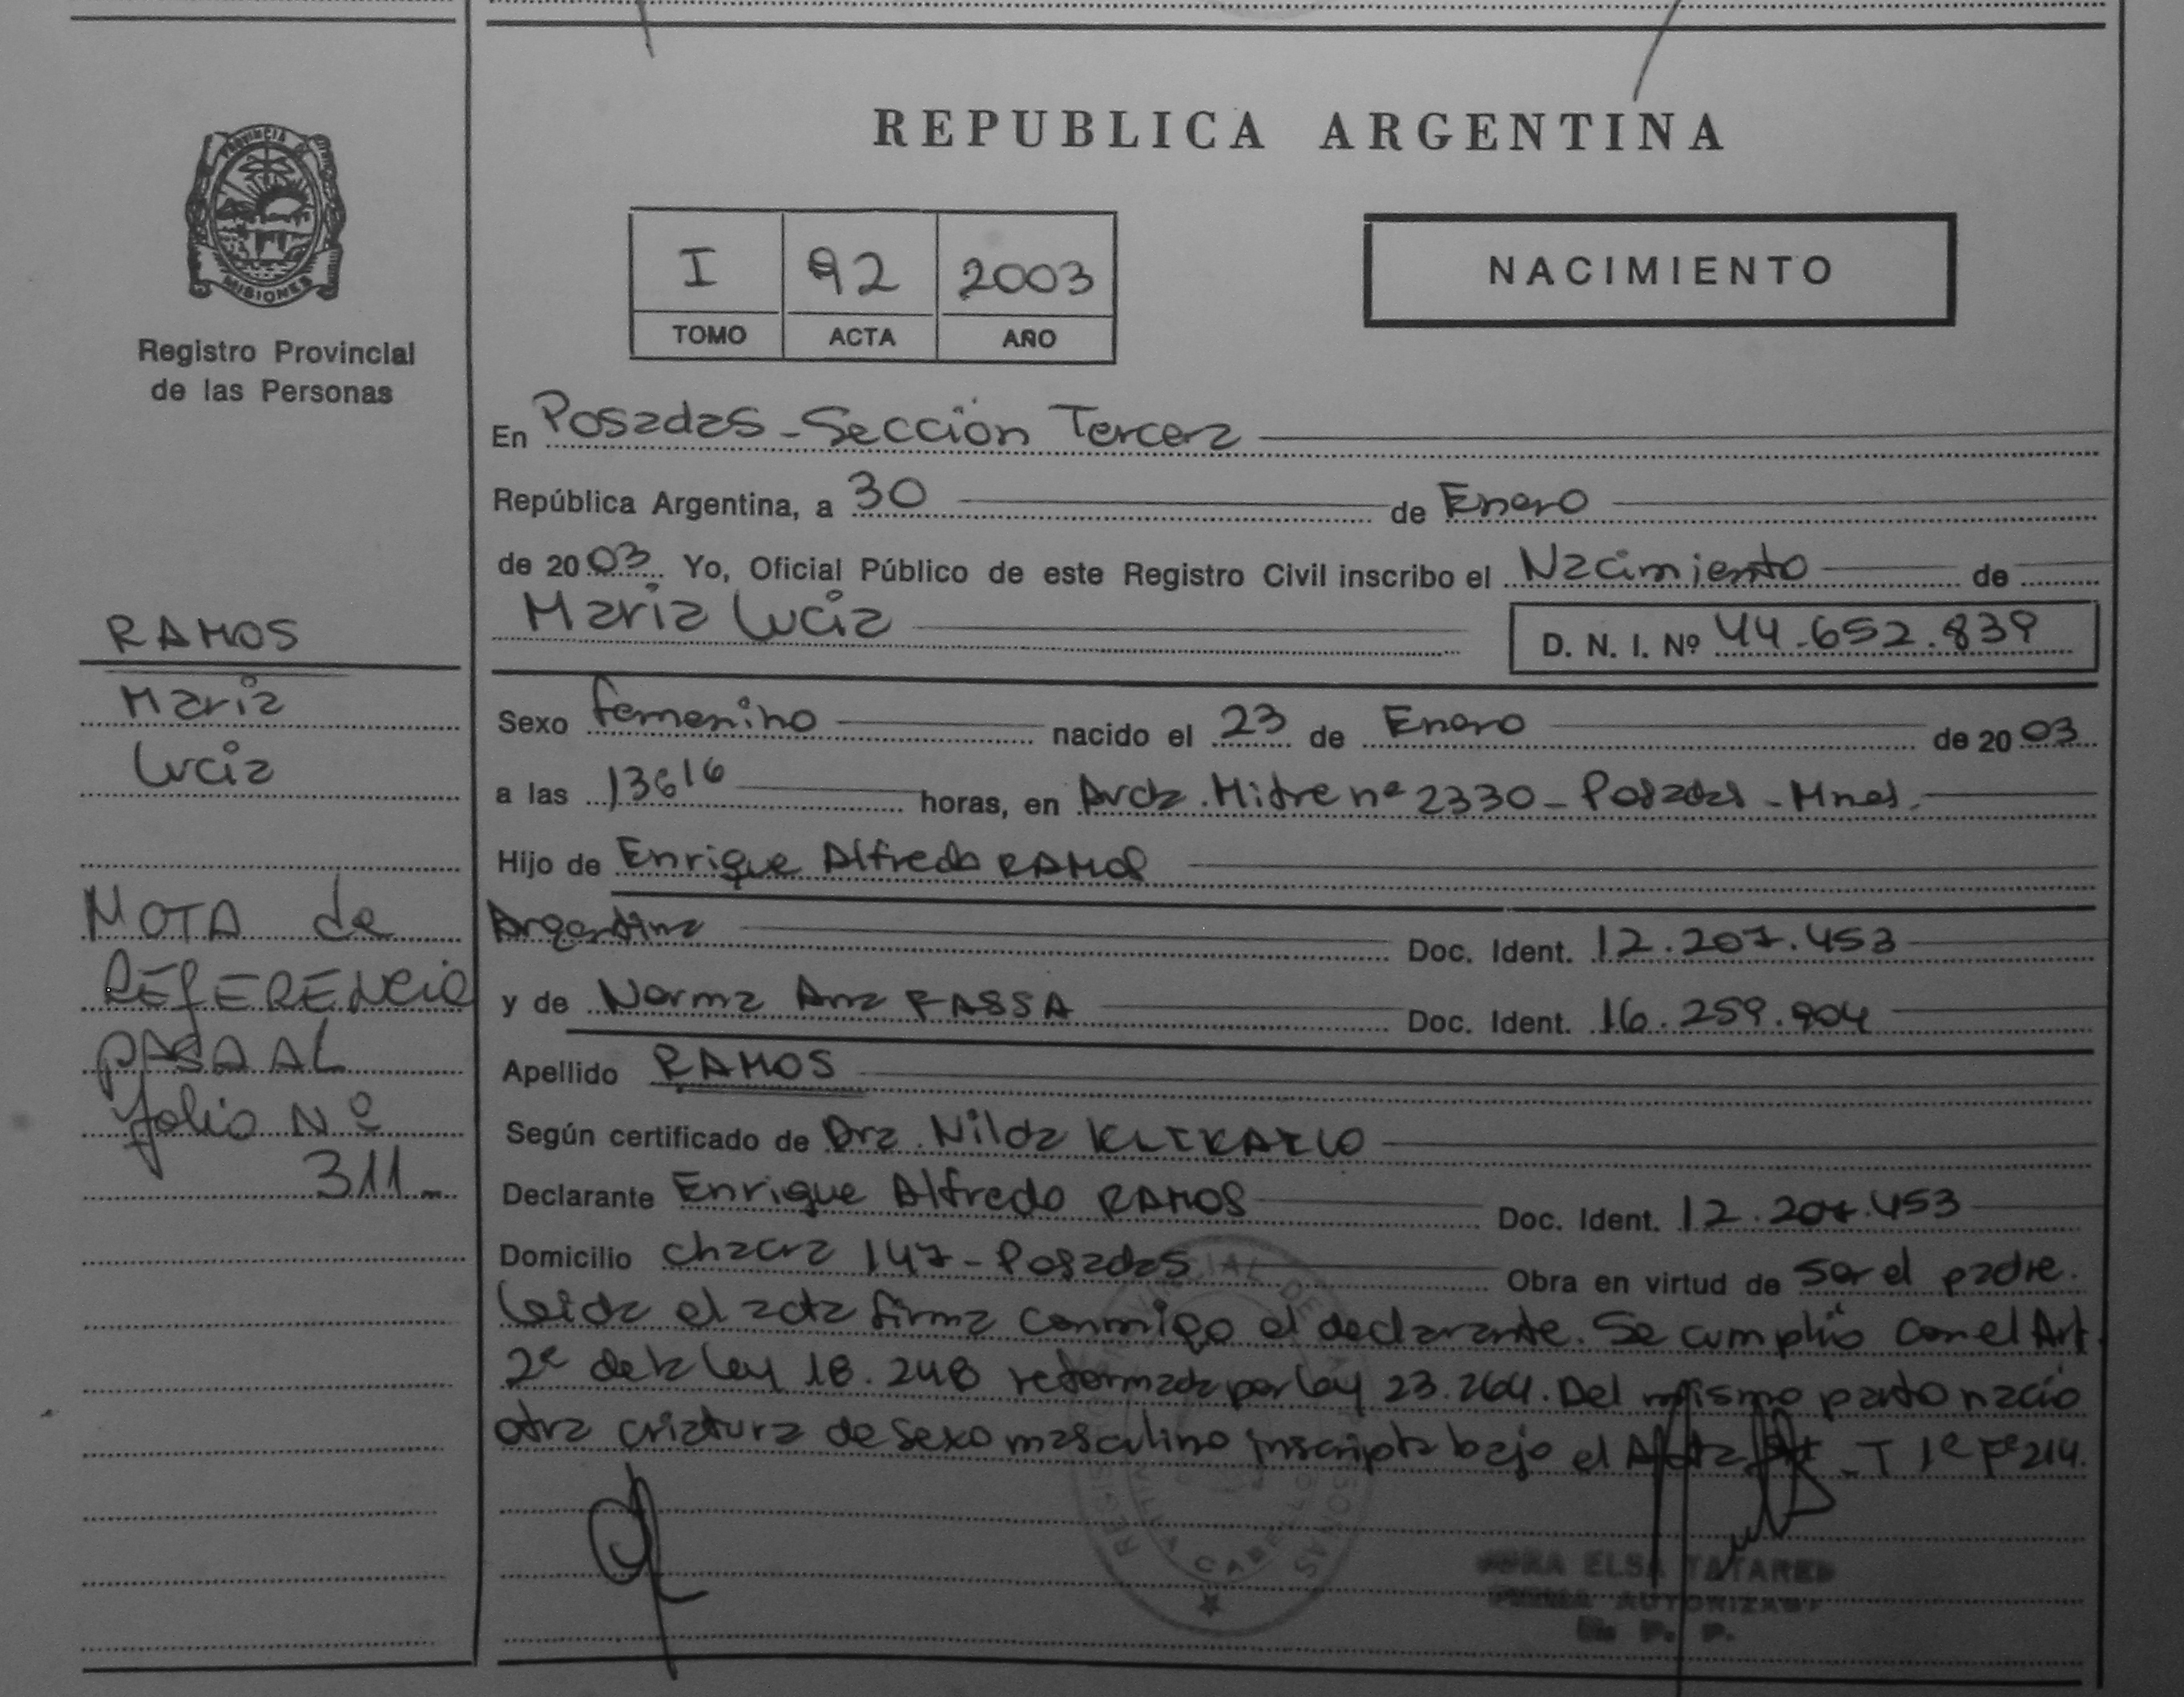 PROVINCIA DE
MISIONES
Registro Provincial
de las Personas
RAMOS
Maria
Lucia
NOTA de
REFERENCIA
PASA AL
folio Nº
311
REPUBLICA ARGENTINA
I 92 2003
TOMO ACTA AÑO
NACIMIENTO
En Posadas - Sección Tercera
República Argentina, a 30 de Enero
de 2003 Yo, Oficial Público de este Registro Civil inscribo el Nacimiento de
Maria Lucia D. N. I. Nº 44.652.839
Sexo femenino nacido el 23 de Enero de 2003
a las 13 horas, en Avda. Mitre nº 2330 - Posadas - Mnes.
Hijo de Enrique Alfredo RAMOS
Argentina Doc. Ident. 12.207.453
y de Norma Ana Doc. Ident. 16.259.904
Apellido RAMOS
Según certificado de Dra. Nilda
Declarante Enrique Alfredo RAMOS Doc. Ident. 12.207.453
Domicilio chacra 147 - Posadas Obra en virtud de ser el padre.
Leida el acta firma conmigo el declarante. Se cumplió con el Art.
2º de la ley 18.248 reformada por ley 23.264. Del mismo parto nació
otra criatura de sexo masculino inscripta bajo el Acta - T 1º Fº 214.
ELSA TATAREN